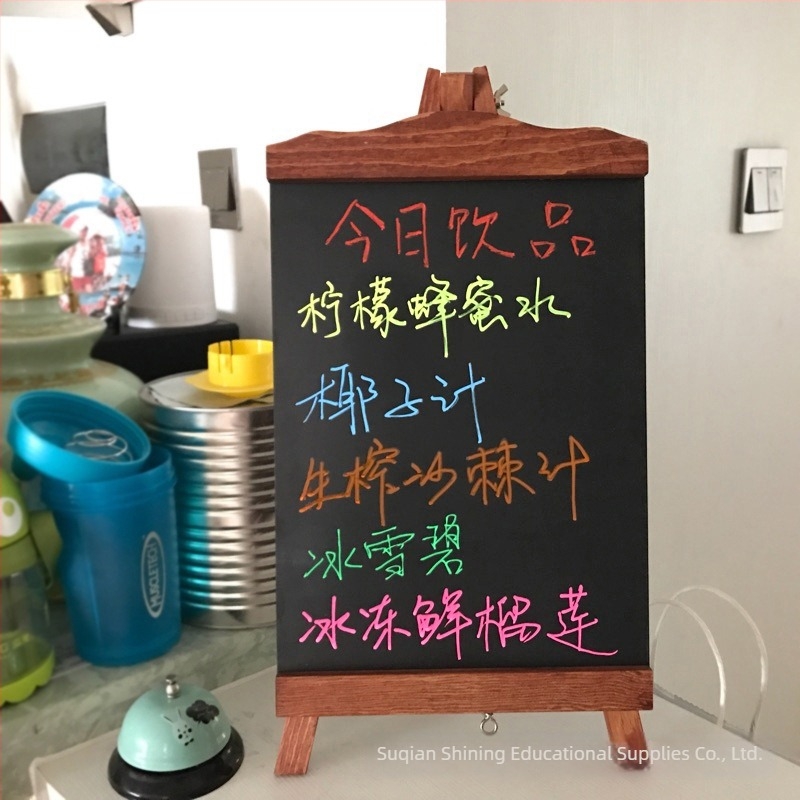 今日饮品
柠檬蜂蜜水
椰子汁
生榨沙棘汁
冰雪碧
冰冻鲜榴莲
MUSCLETECH
Suqian Shining Educational Supplies Co., Ltd.